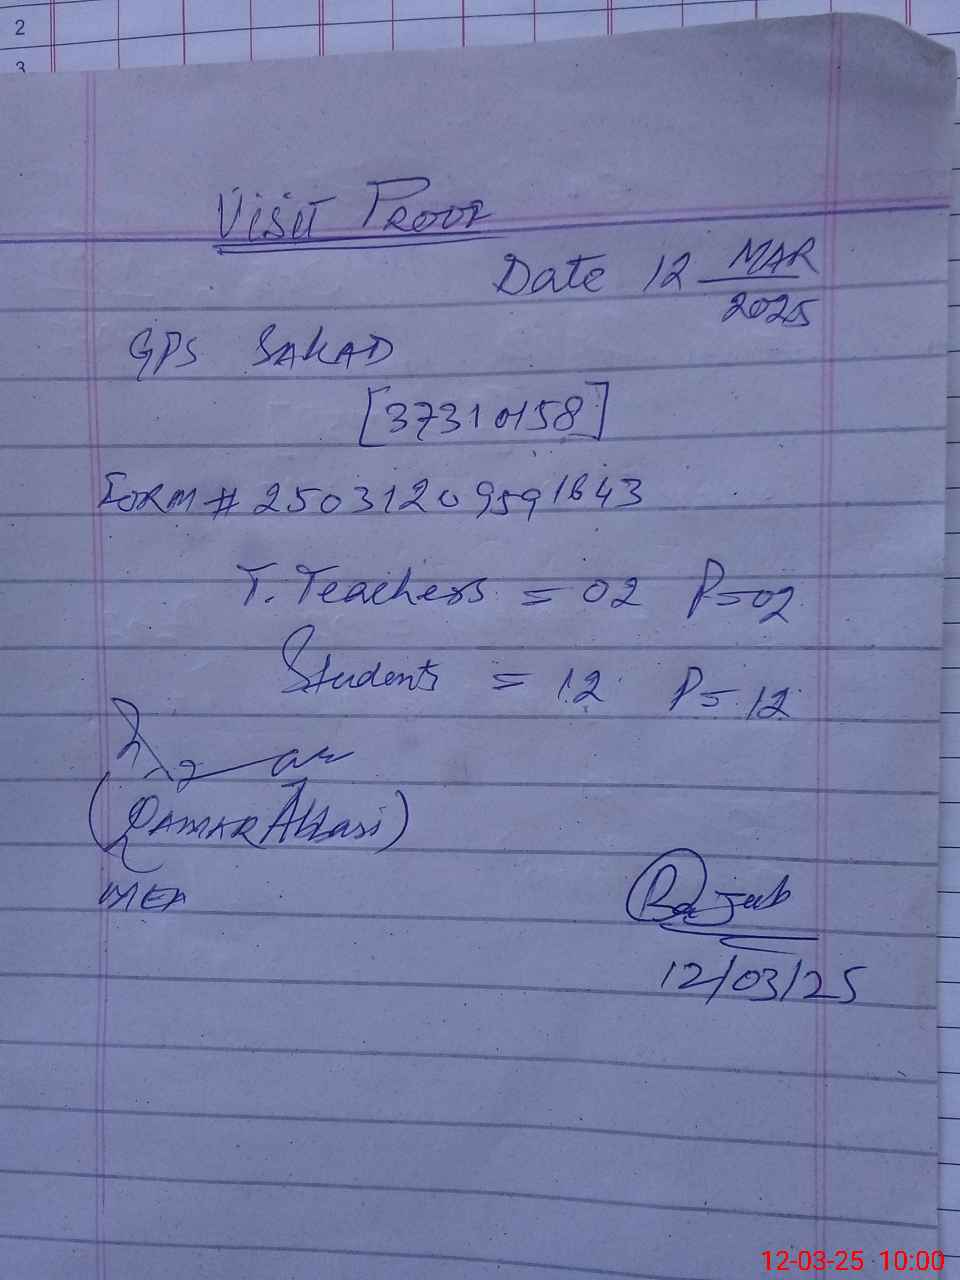 2
3
VISIT PROOF
Date 12 MAR
2025
GPS SAKAD
[37310158]
FORM # 25031209591643
T. Teachers = 02 P=02
Students = 12 P= 12
(QAMAR Abbasi)
MEA
12/03/25
12-03-25 10:00